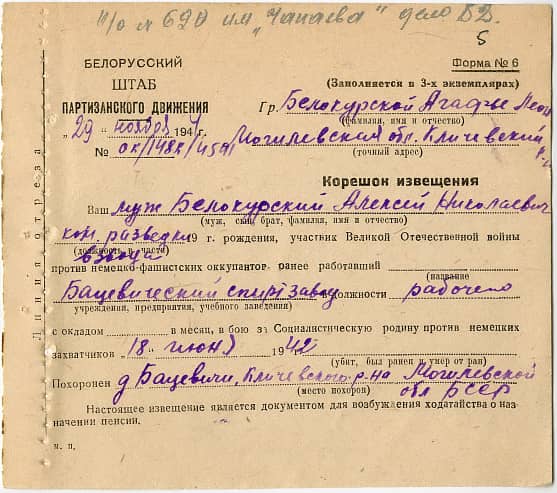 п/о № 620 им „Чапаева" дело
5
БЕЛОРУССКИЙ
ШТАБ
ПАРТИЗАНСКОГО ДВИЖЕНИЯ
„29" ноября 1944 г.
№ ок/148к/4591
Форма № 6
(Заполняется в 3-х экземплярах)
Гр. Белокурской Агафье
(фамилия, имя и отчество)
Могилевская обл. Кличевский
(точный адрес)
Линия отреза
Корешок извещения
Ваш муж Белокурский Алексей Николаевич
(муж, сын, брат, фамилия, имя и отчество)
ком. разведки 19 г. рождения, участник Великой Отечественной войны
взвода
(должность в части)
против немецко-фашистских оккупантов ранее работавший
(название
Бацевический спиртзавод должности рабочего
учреждения, предприятия, учебного заведения)
с окладом в месяц, в бою за Социалистическую родину против немецких
захватчиков „18" июня 1942
(убит, был ранен и умер от ран)
Похоронен д Бацевичи, Кличевского р-на Могилевской
(место похорон) обл БССР
Настоящее извещение является документом для возбужения ходатайства о наз-
начении пенсии.
м. п.